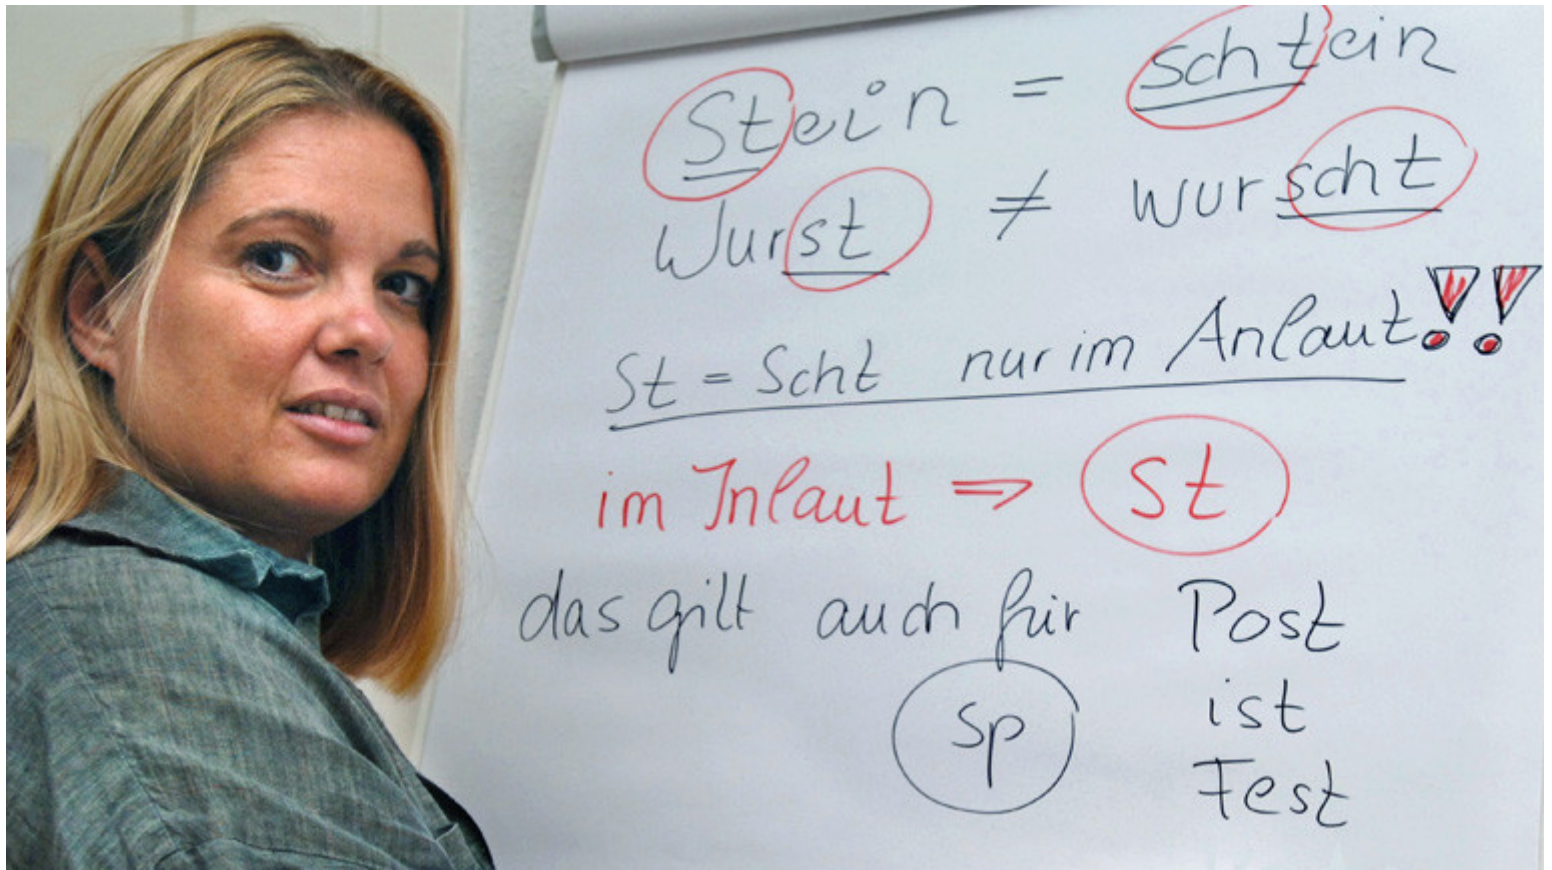 Stein = schtein
Wurst ≠ wurscht
St = Scht nur im Anlaut!!
im Inlaut ⇒ st
das gilt auch für Post
sp ist
Fest